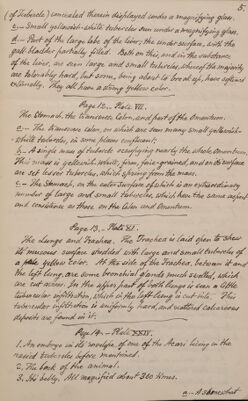 5.
(of Tubercle) concealed therein displayed under a magnifying glass.
f.— Small yellowish-white tubercles seen under a magnifying glass.
g.— Part of the large lobe of the liver; the under surface, with the
gall bladder partially filled. Both on this, and in the substance
of the liver, are seen large and small tubercles, whereof the majority
are tolerably hard, but some, being about to break up, have softened
externally. They all have a strong yellow color.
Page 12.— Plate VII.
The Stomach, the transverse Colon, and part of the Omentum.
a.— The transverse colon, on which are seen many small yellowish-
white tubercles, in some places confluent.
b.— A single mass of tubercle occupying nearly the whole Omentum.
This mass is yellowish-white, firm, fine-grained, and on its surface
are set lesser tubercles, which spring from the mass.
c.— The Stomach, on the outer surface of which is an extraordinary
number of large and small tubercles, which have the same aspect
and consistence as those on the Colon and Omentum.
Page 13.— Plate XI.
The Lungs and Trachea. The Trachea is laid open to shew
its mucous surface studded with large and small tubercles of
a yellow color. At the side of the Trachea, between it and
the left lung, are some bronchial glands much swelled, which
are cut across. In the upper part of both lungs is seen a little
tubercular infiltration, which in the left lung is cut into. This
tubercular infiltration is uniformly hard, and scattered calcareous
deposits are found in it.
Page 14.— Plate XXIV.
1. An embryo in its envelope of one of the Acari living in the
raised tubercles before mentioned.
2. The back of the animal.
3. Its belly. All magnified about 300 times.
a.— A somewhat